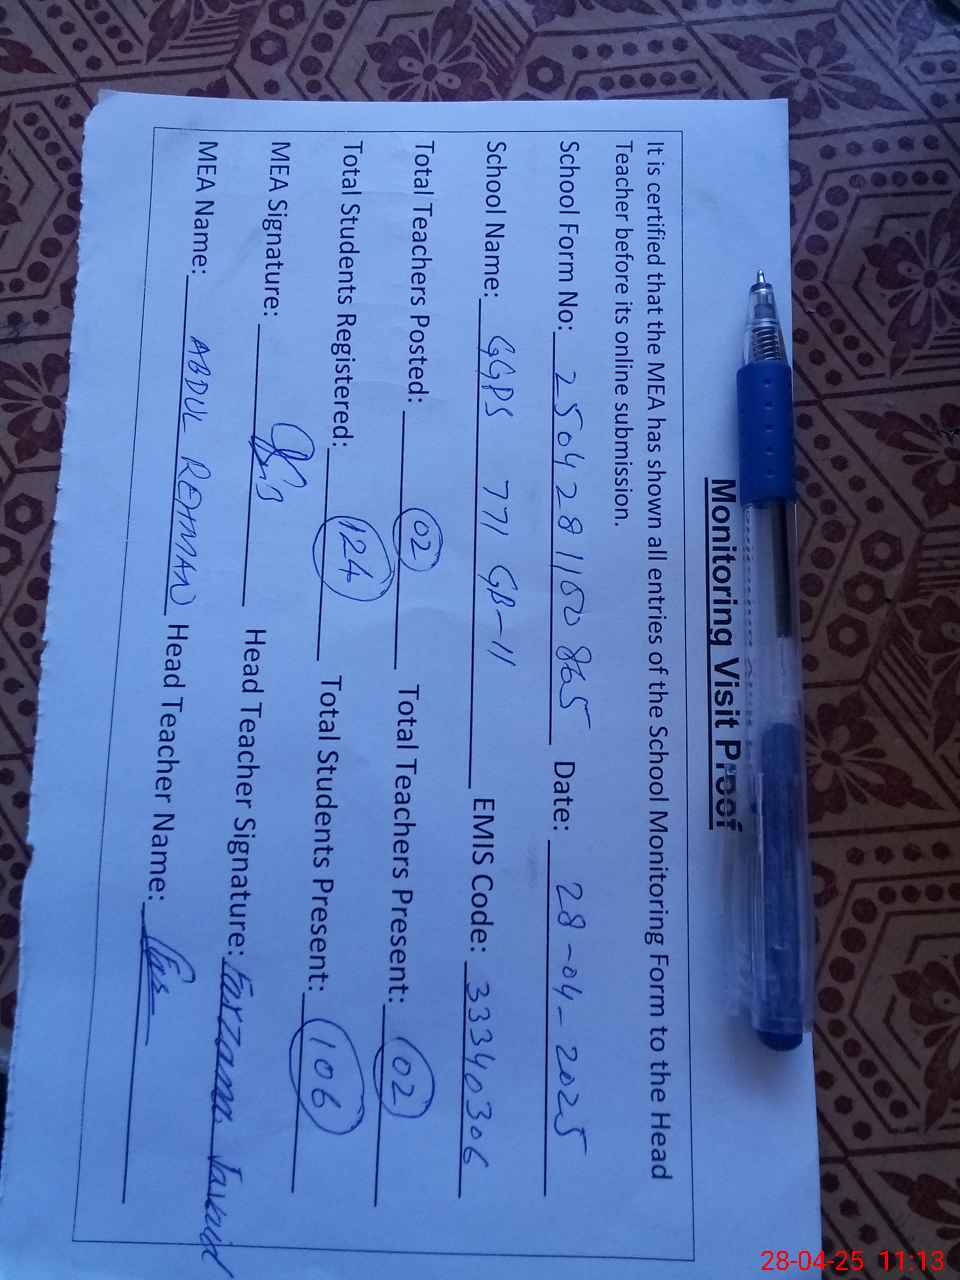 Monitoring Visit Proof
It is certified that the MEA has shown all entries of the School Monitoring Form to the Head
Teacher before its online submission.
School Form No: 250428110865 Date: 28-04-2025
School Name: GGPS 771 GB-11 EMIS Code: 33340306
Total Teachers Posted: 02 Total Teachers Present: 02
Total Students Registered: 124 Total Students Present: 106
MEA Signature: Head Teacher Signature: Farzana Javaid
MEA Name: ABDUL REHMAN Head Teacher Name:
28-04-25 11:13